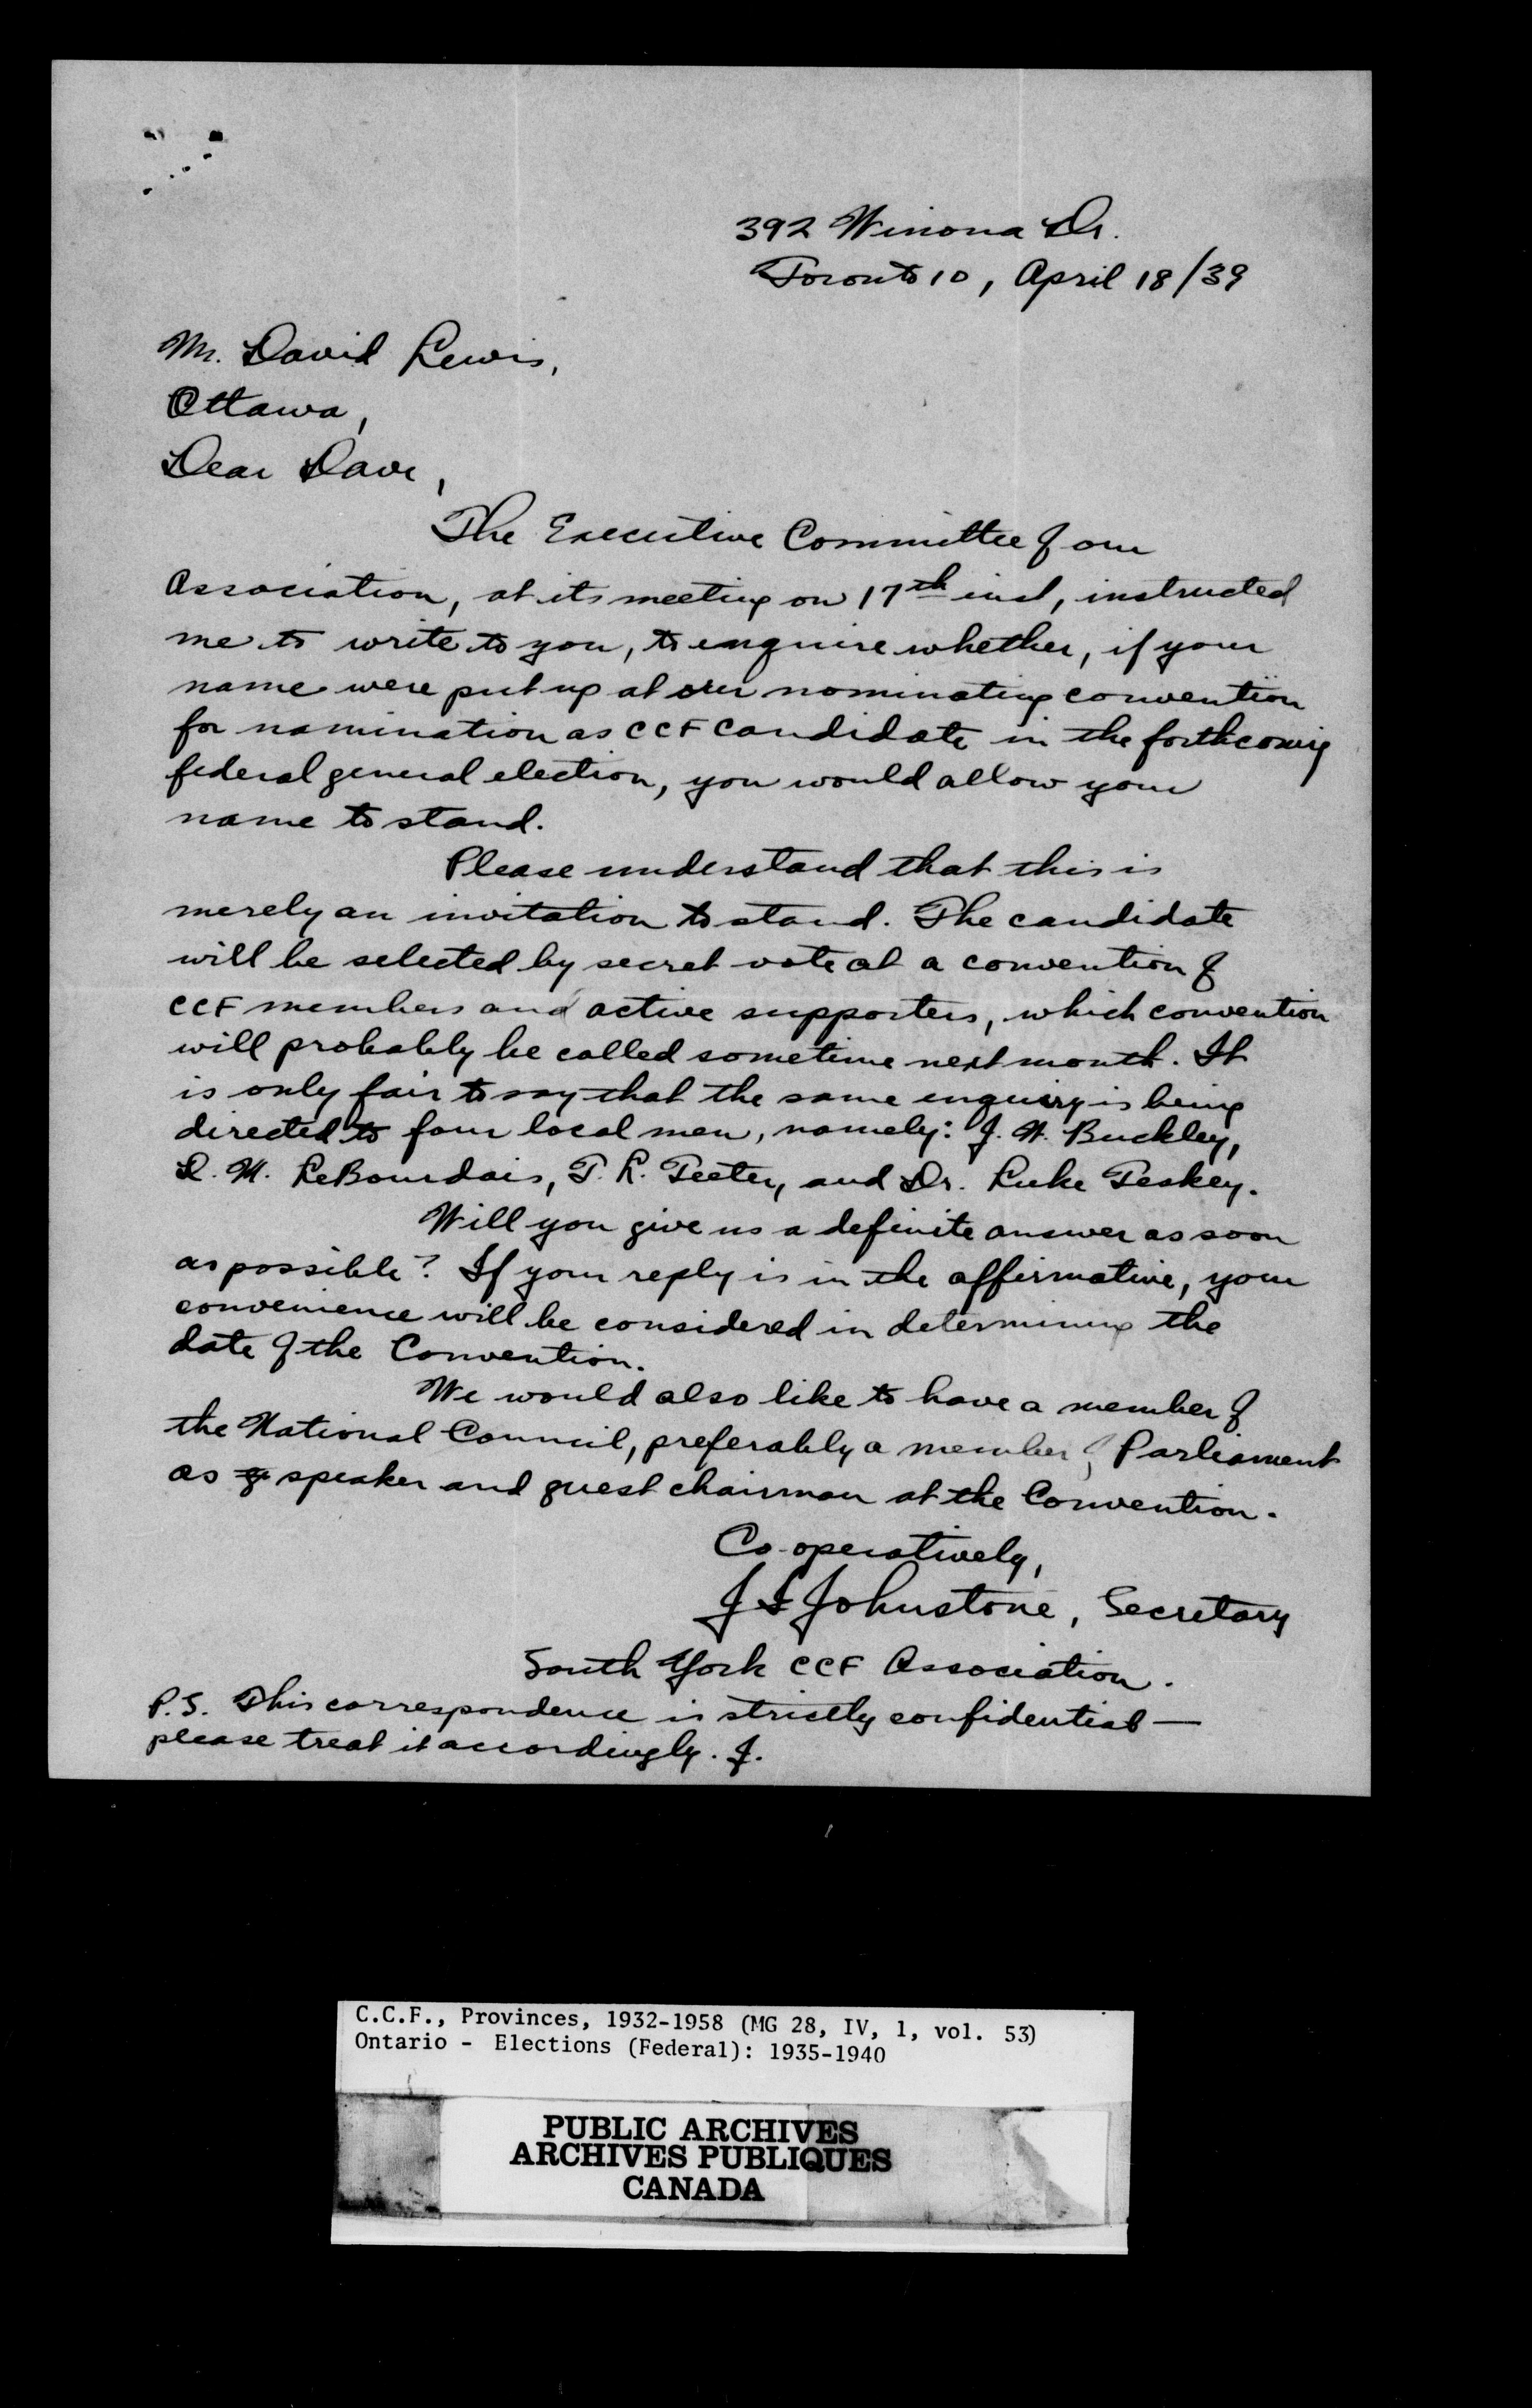 392 Winona Dr.
Toronto 10, April 18/39
Mr. David Lewis,
Ottawa,
Dear Dave,
The Executive Committee of our
Association, at its meeting on 17th inst, instructed
me to write to you, to enquire whether, if your
name were put up at our nominating convention
for nomination as CCF candidate in the forthcoming
federal general election, you would allow your
name to stand.
Please understand that this is
merely an invitation to stand. The candidate
will be selected by secret vote at a convention of
CCF members and active supporters, which convention
will probably be called sometime next month. It
is only fair to say that the same enquiry is being
directed to four local men, namely: J. W. Buckley,
D. M. LeBourdais, T. L. Teeter, and Dr. Luke Teskey.
Will you give us a definite answer as soon
as possible? If your reply is in the affirmative, your
convenience will be considered in determining the
date of the Convention.
We would also like to have a member of
the National Council, preferably a member of Parliament
as speaker and guest chairman at the Convention.
Co-operatively,
J S Johnstone, Secretary
South York CCF Association.
P.S. This correspondence is strictly confidential —
please treat it accordingly. J.
C.C.F., Provinces, 1932-1958 (MG 28, IV, 1, vol. 53)
Ontario - Elections (Federal): 1935-1940
PUBLIC ARCHIVES
ARCHIVES PUBLIQUES
CANADA